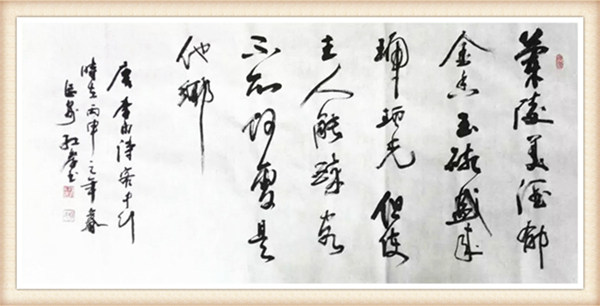 蘭陵美酒郁
金香玉碗盛来
琥珀光但使
主人能醉客
不知何處是
他鄉
唐李白詩客中行
時在丙申之年春
书